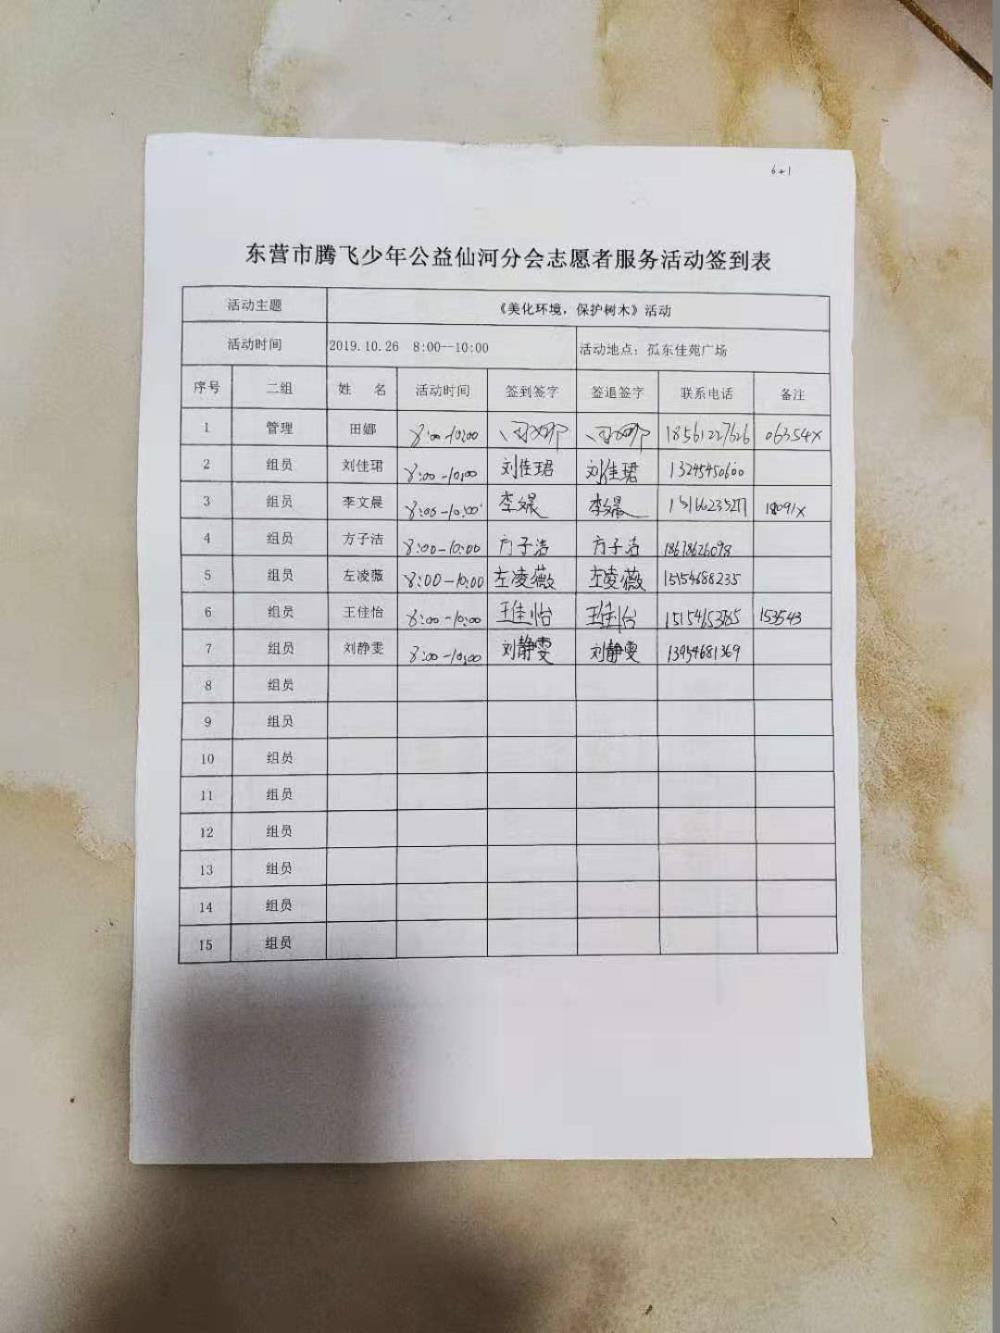 6+1
东营市腾飞少年公益仙河分会志愿者服务活动签到表
活动主题 《美化环境，保护树木》活动
活动时间 2019.10.26 8:00--10:00 活动地点：孤东佳苑广场
序号 二组 姓 名 活动时间 签到签字 签退签字 联系电话 备注
1 管理 田娜 8:00-10:00 田娜 田娜 18561227626 06354X
2 组员 刘佳珺 8:00-10:00 刘佳珺 刘佳珺 13245450600
3 组员 李文晨 8:00-10:00 李文晨 李文晨 18091X
4 组员 方子洁 8:00-10:00 方子洁 方子洁
5 组员 左凌薇 8:00-10:00 左凌薇 左凌薇 15154688235
6 组员 王佳怡 8:00-10:00 王佳怡 王佳怡 153543
7 组员 刘静雯 8:00-10:00 刘静雯 刘静雯 13954681369
8 组员
9 组员
10 组员
11 组员
12 组员
13 组员
14 组员
15 组员